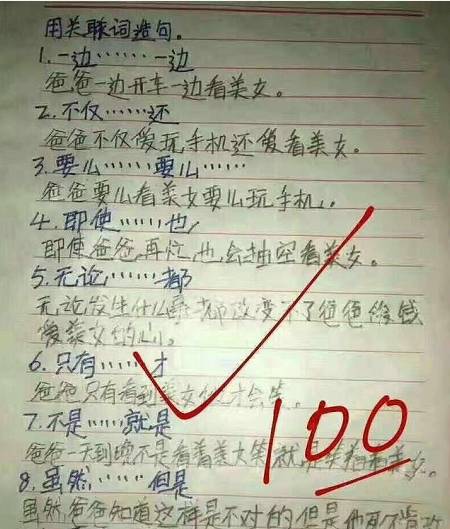 用关联词造句。
1.一边……一边
爸爸一边开车一边看美女。
2.不仅……还
爸爸不仅爱玩手机还爱看美女。
3.要么……要么……
爸爸要么看美女要么玩手机。
4.即使……也
即使爸爸再忙,也会抽空看美女。
5.无论……都
无论发生什么事都改变不了爸爸
爱美女的心。
6.只有……才
爸爸只有看到美女他才会笑。
7.不是……就是
爸爸一天到晚不是看着美女笑就是
8.虽然……但是
虽然爸爸知道这样是不对的但是他
100